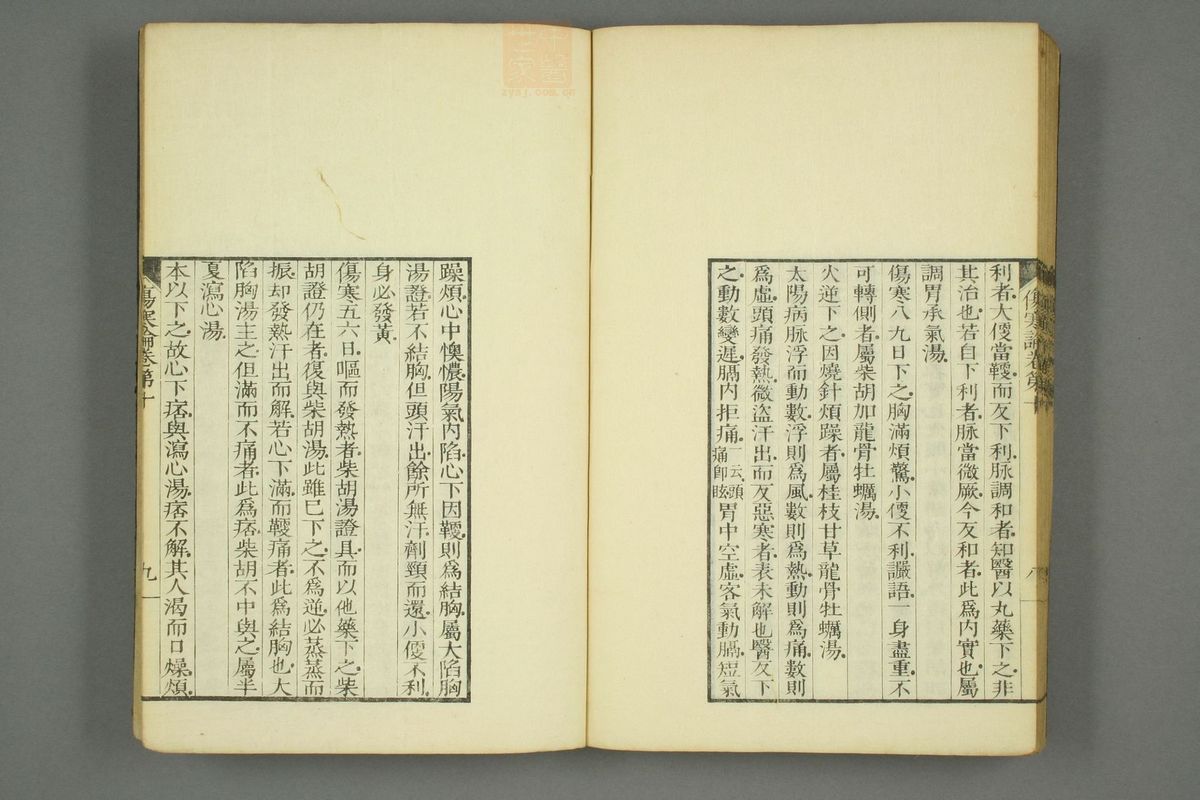 利者大便當鞕而反下利脉調和者知醫以丸藥下之非
其治也若自下利者脉當微厥今反和者此爲内實也屬
調胃承氣湯
傷寒八九日下之胸滿煩驚小便不利讝語一身盡重不
可轉側者屬柴胡加龍骨牡蠣湯
火逆下之因燒針煩躁者屬桂枝甘草龍骨牡蠣湯
太陽病脉浮而動數浮則爲風數則爲熱動則爲痛數則
爲虛頭痛發熱微盜汗出而反惡寒者表未解也醫反下
之動數變遲膈内拒痛一云頭痛卽眩胃中空虛客氣動膈短氣
躁煩心中懊憹陽氣内陷心下因鞕則爲結胸屬大陷胸
湯證若不結胸但頭汗出餘所無汗劑頸而還小便不利
身必發黃
傷寒五六日嘔而發熱者柴胡湯證具而以他藥下之柴
胡證仍在者復與柴胡湯此雖巳下之不爲逆必蒸蒸而
振却發熱汗出而解若心下滿而鞕痛者此爲結胸也大
陷胸湯主之但滿而不痛者此爲痞柴胡不中與之屬半
夏瀉心湯
本以下之故心下痞與瀉心湯痞不解其人渴而口燥煩
傷寒論卷第十
九
zysj.com.cn